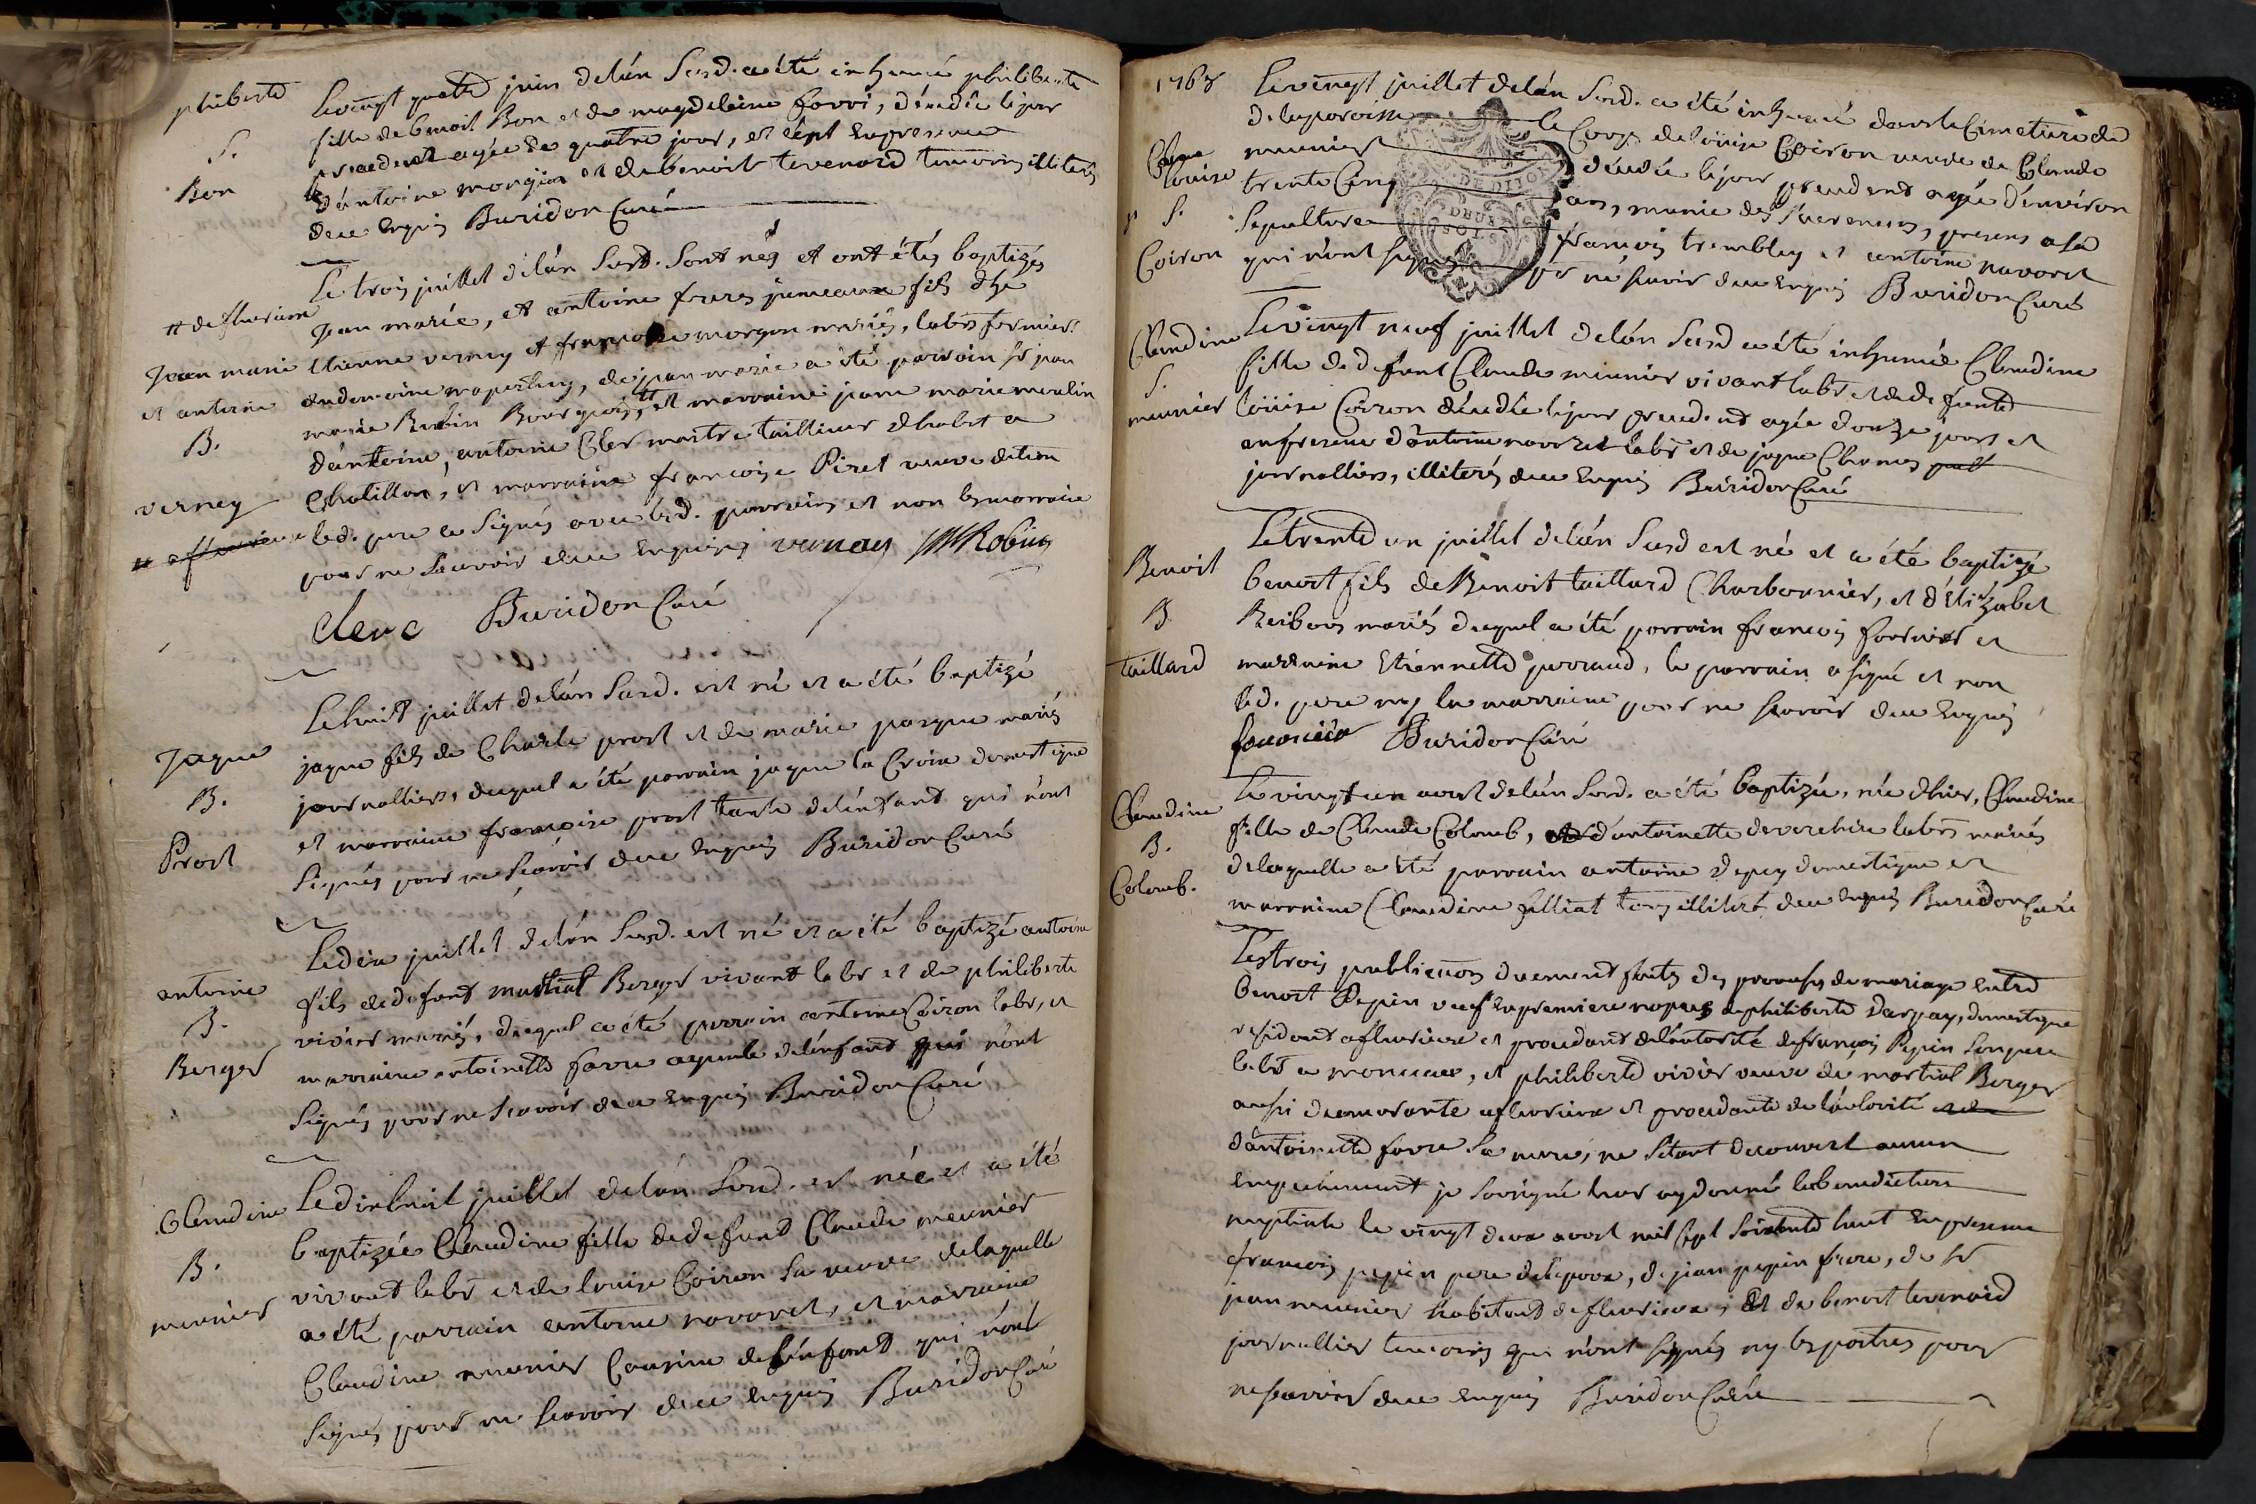 philiberte
S.
Bon
Le vingt quatre juin de l'án Susd. a été inhumé philiberte
fille de benoit Bon et de magdeleine favri, décedée le jour
precedent agée de quatre jour, et c'est En presence
d'antoine morgon et de benoit tevenard temoins illiterés
de ce Enquis Buridon Curé
# de fleurieux
Jean marie
et antoine
B.
verney
Le trois juillet de l'án Susd. Sont nés et ont étés baptizés
Jean marie, et antoine freres jumeaux fils d'he
Etienne verney et françoise morgon mariés, labrs fermiers
au domaine, de jean marie a été parrain sr jean
marie Robin Bourgeois, # et marraine jeane marie moulin
d'antoine, antoine Cler maitre tailleur d'habit a
Chatillon, et marraine françoise Piret veuve
led. pere a Signés avec lesd. parrains et non les marraine
pour ne Scavoir de ce Enquises vernay JM Robin
clerc Buridon Curé
Jaque
B.
Prost
Le huit juillet de l'án Susd. est né et a été baptizé
jaque fils de Charle prost et de marie paquer mariés
journalliers, duquel a été parrain jaque la Croix domestique
et marraine françoise prost tante de l'énfant qui n'ont
Signés pour ne Scavoir de ce Enquis Buridon Curé
antoine
B.
Berger
Le dix juillet de l'án Susd. est né et a été baptizé antoine
fils de defunt martial Berger vivant labr et de philiberte
vivier mariés, duquel a été parrain antoine Coiron labr, et
marraine antoinette favre ayeule de l'énfant qui n'ont
Signés pour ne Scavoir de ce Enquis Buridon Curé
Claudine
B.
meunier
Le dixhuit juillet de l'án Susd. est née et a été
baptizée Claudine fille de defunt Claude meunier
vivant labr et de louise Coiron Sa veuve de laquelle
a été parrain antoine navoret, et marraine
Claudine meunier Cousine de l'énfant qui n'ont
Signés pour ne Scavoir de ce Enquis Buridon Curé
1768
louise
S.
Coiron
Le vingt juillet de l'án Susd. a été inhumé dans le Cimetiere de
de la paroisse le Corps de louise Coiron veuve de Claude
meunier décedée le jour precedent agée d'environ
trente Cinq ans, munie des Sacremens, presens a Sa
Sepulture françois tremblay et antoine navoret
qui n'ont signés pr ne scavoir de ce Enquis Buridon Curé
Claudine
S.
meunier
Le vingt neuf juillet de l'án Susd a été inhumée Claudine
fille de defunt Claude meunier vivant labr et de defunte
loüise Coiron décedée le jour precedent agée d'onze jours et
en presence d'antoine navoret labr et de jaque Chanes
journalliers, illiterés de ce Enquis Buridon Curé
Benoit
B
taillard
Le trente un juillet de l'án Susd est né et a été baptizé
benoit fils de Benoit taillard Charbonnier, et d'Elizabet
Reibous mariés duquel a été parrain françois fournier et
marraine Etiennette perraud, le parrain a signé et non
led. pere ny la marraine pour ne scavoir de ce Enquis
fournier Buridon Curé
Claudine
B.
Colomb.
Le vingt un aout de l'án Susd. a été baptizée, née d'hier, Claudine
fille de Claude Colomb, d'antoinette devorchire labrs mariés
de laquelle a été parrain antoine depey domestique et
marraine Claudine filliat tous illitéré de ce Enquis Buridon Curé
Les trois publications duement faites des promesses de mariage Entre
benoit Pepin veuf En premiere nopces de philiberte Darpay, domestique
residant a fleurieux et procedant de l'autorité de françois Pepin Son pere
labr a monceaux, et philiberte vivier veuve de martial Berger
aussi demeurante a fleurieux et procedante de l'autorité
d'antoinette favre Sa mere, ne S'etant decouvert aucun
Empechement je Soussigné leur ay donné la benediction
nuptiale le vingt deux aout mil Sept Soixante huit En presence
françois pepin pere de l'epoux, de jean pepin frere, de sr
jean meunier habitant de fleurieux, Et de benoit tevenard
journallier temoins qui n'ont signés ny les parties pour
ne scavoir de ce Enquis Buridon Curé